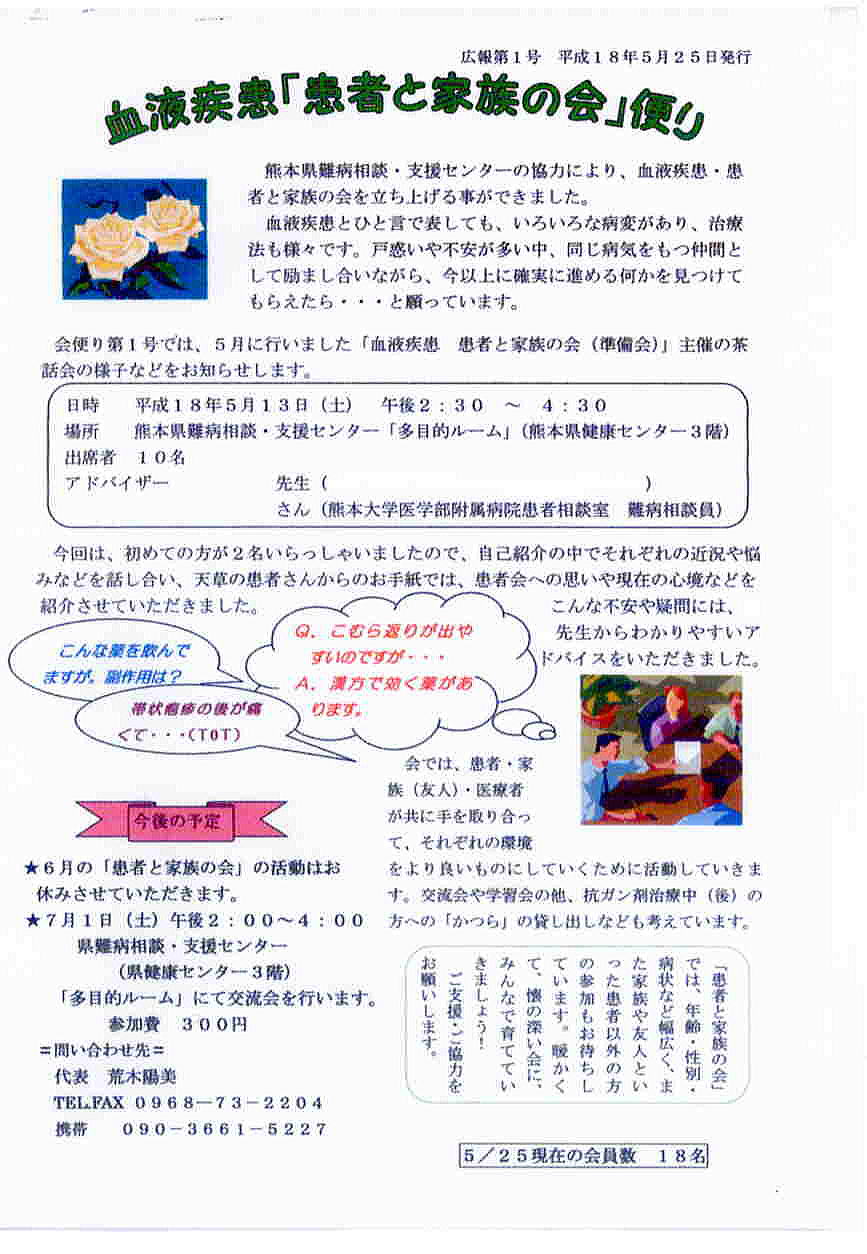 広報第１号　平成１８年５月２５日発行
血液疾患「患者と家族の会」便り
熊本県難病相談・支援センターの協力により、血液疾患・患
者と家族の会を立ち上げる事ができました。
血液疾患とひと言で表しても、いろいろな病変があり、治療
法も様々です。戸惑いや不安が多い中、同じ病気をもつ仲間と
して励まし合いながら、今以上に確実に進める何かを見つけて
もらえたら・・・と願っています。
会便り第１号では、５月に行いました「血液疾患　患者と家族の会（準備会）」主催の茶
話会の様子などをお知らせします。
日時　平成１８年５月１３日（土）　午後２：３０　～　４：３０
場所　熊本県難病相談・支援センター「多目的ルーム」（熊本県健康センター３階）
出席者　１０名
アドバイザー　　　　　先生（　　　　　　　　　　　　　　　　　）
さん（熊本大学医学部附属病院患者相談室　難病相談員）
今回は、初めての方が２名いらっしゃいましたので、自己紹介の中でそれぞれの近況や悩
みなどを話し合い、天草の患者さんからのお手紙では、患者会への思いや現在の心境などを
紹介させていただきました。
こんな不安や疑問には、
先生からわかりやすいア
ドバイスをいただきました。
こんな薬を飲んで
ますが。副作用は？
Ｑ．こむら返りが出や
すいのですが・・・
Ａ．漢方で効く薬があ
ります。
帯状疱疹の後が痛
くて・・・（T0T）
会では、患者・家
族（友人）・医療者
が共に手を取り合っ
て、それぞれの環境
をより良いものにしていくために活動していきま
す。交流会や学習会の他、抗ガン剤治療中（後）の
方への「かつら」の貸し出しなども考えています。
今後の予定
★６月の「患者と家族の会」の活動はお
休みさせていただきます。
★７月１日（土）午後２：００～４：００
県難病相談・支援センター
（県健康センター３階）
「多目的ルーム」にて交流会を行います。
参加費　３００円
＝問い合わせ先＝
代表　荒木陽美
TEL.FAX　０９６８－７３－２２０４
携帯　０９０－３６６１－５２２７
「患者と家族の会」
では、年齢・性別・
病状など幅広く、ま
た家族や友人とい
った患者以外の方
の参加もお待ちし
ています。暖かく
て、懐の深い会に、
みんなで育ててい
きましょう！
ご支援・ご協力を
お願いします。
５／２５現在の会員数　１８名